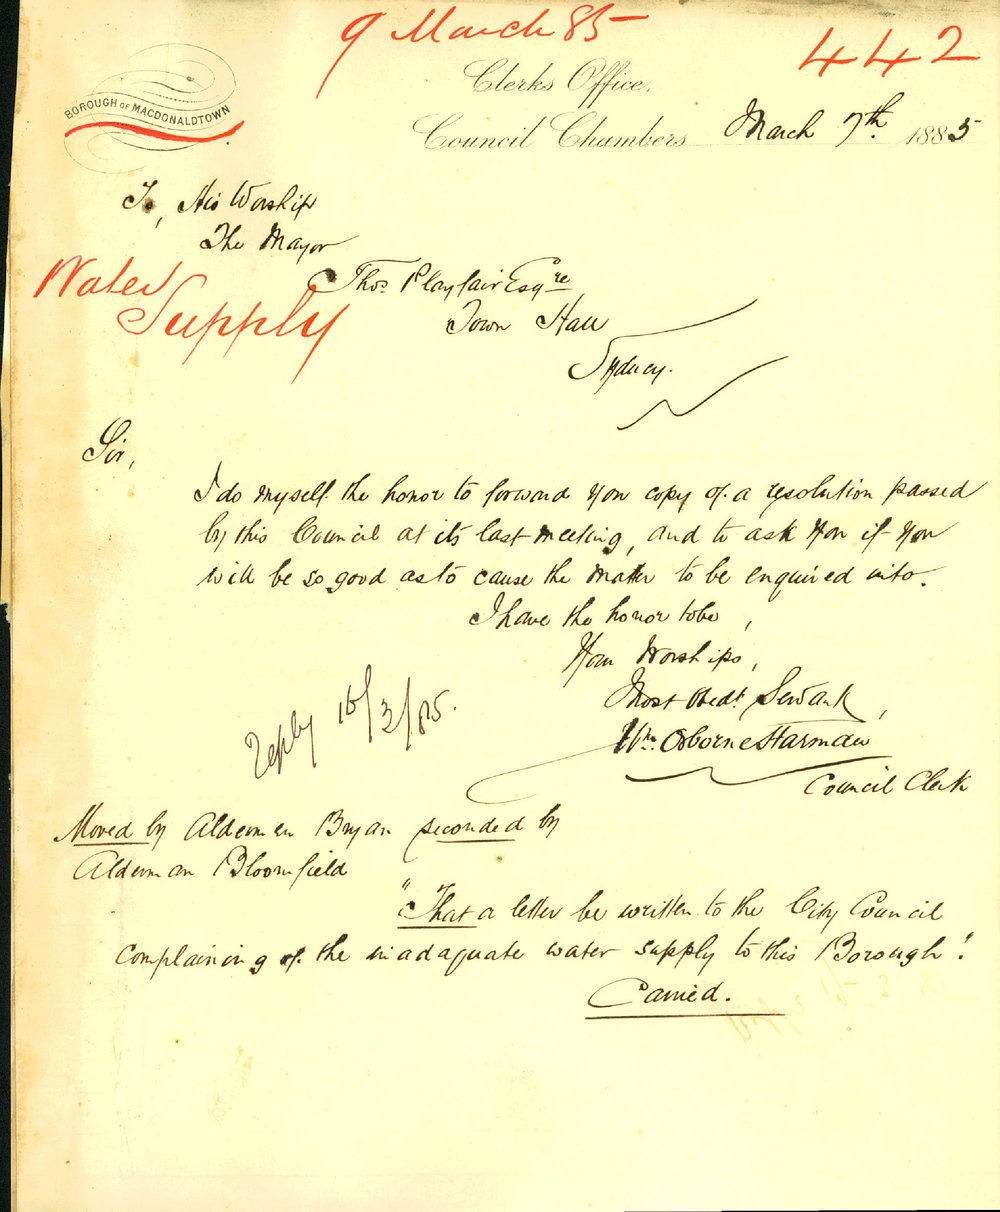 9 March 85
442
Clerks Office.
BOROUGH OF MACDONALDTOWN
Council Chambers March 7th 1885
To, His Worship
The Mayor
Water
Supply
Thos. Playfair Esqre
Town Hall
Sydney.
Sir,
I do myself the honor to forward you copy of a resolution passed
by this Council at its last meeting, and to ask you if you
will be so good as to cause the matter to be enquired into.
I have the honor to be,
Your Worships,
Most Obedt Servant,
Wm. Osborne Starman
Council Clerk
reply 16/3/85.
Moved by Alderman Bryan seconded by
Alderman Bloomfield
"That a letter be written to the City Council
complaining of the inadaquate water supply to this Borough".
Carried.